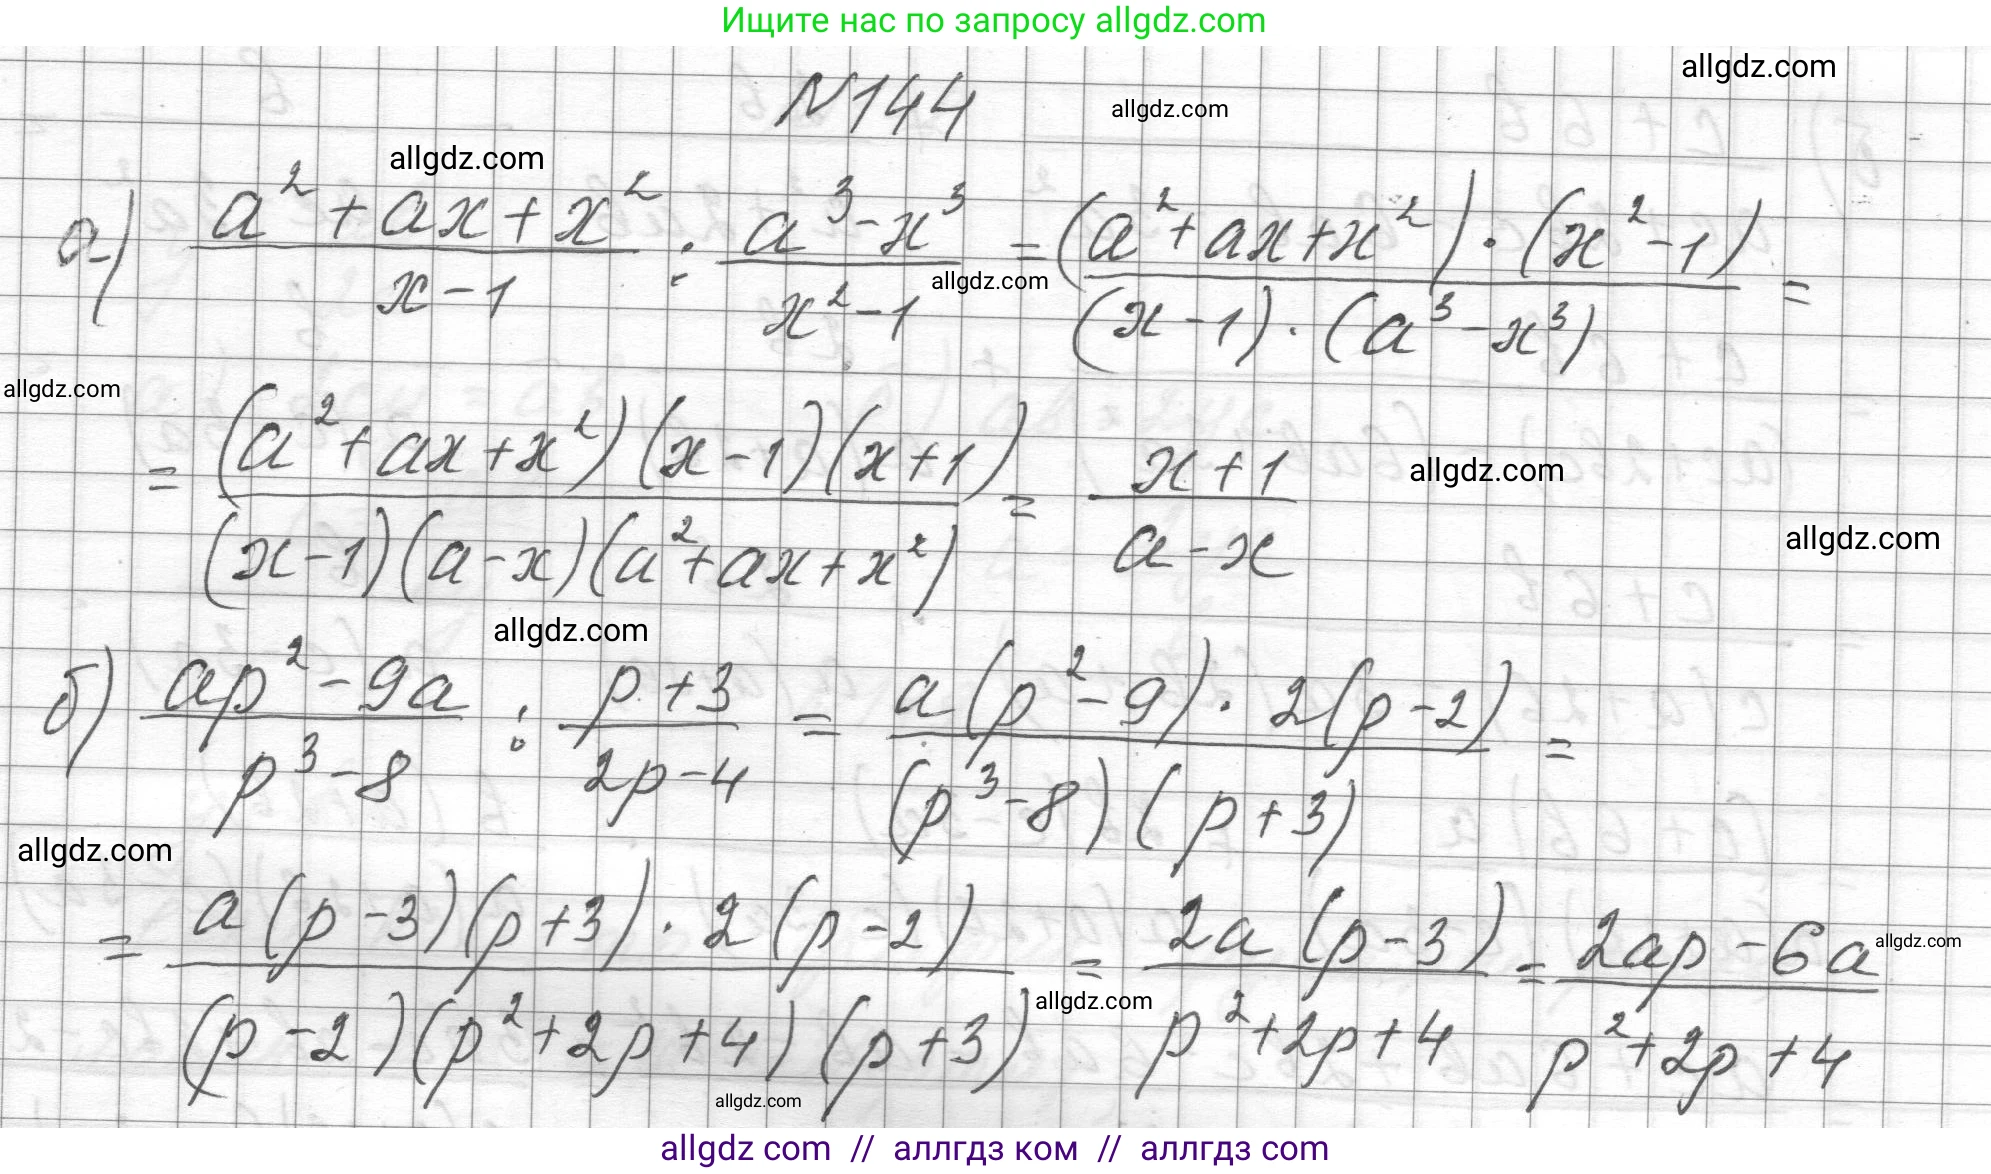 Ищите нас по запросу allgdz.com
allgdz.com
№144
allgdz.com
allgdz.com
а) (a²+ax+x²)/(x-1) : (a³-x³)/(x²-1) = ((a²+ax+x²)·(x²-1))/((x-1)·(a³-x³)) =
allgdz.com
allgdz.com
= ((a²+ax+x²)(x-1)(x+1))/((x-1)(a-x)(a²+ax+x²)) = (x+1)/(a-x)
allgdz.com
allgdz.com
allgdz.com
б) (ap²-9a)/(p³-8) : (p+3)/(2p-4) = (a(p²-9)·2(p-2))/((p³-8)(p+3)) =
allgdz.com
= (a(p-3)(p+3)·2(p-2))/((p-2)(p²+2p+4)(p+3)) = (2a(p-3))/(p²+2p+4) = (2ap-6a)/(p²+2p+4)
allgdz.com
allgdz.com
allgdz.com
allgdz com // аллгдз ком // аллгдз com